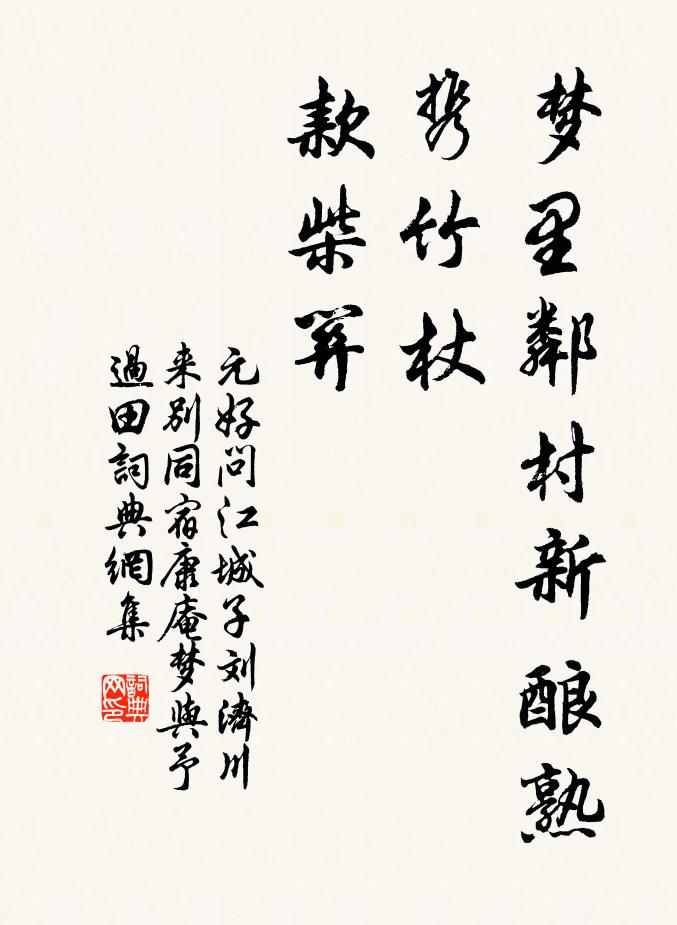 梦里鄰村新酿熟
携竹杖
款柴關
元好问江城子刘濟川
来别同宿康庵梦與予
過田詞典網集
詞典
网印